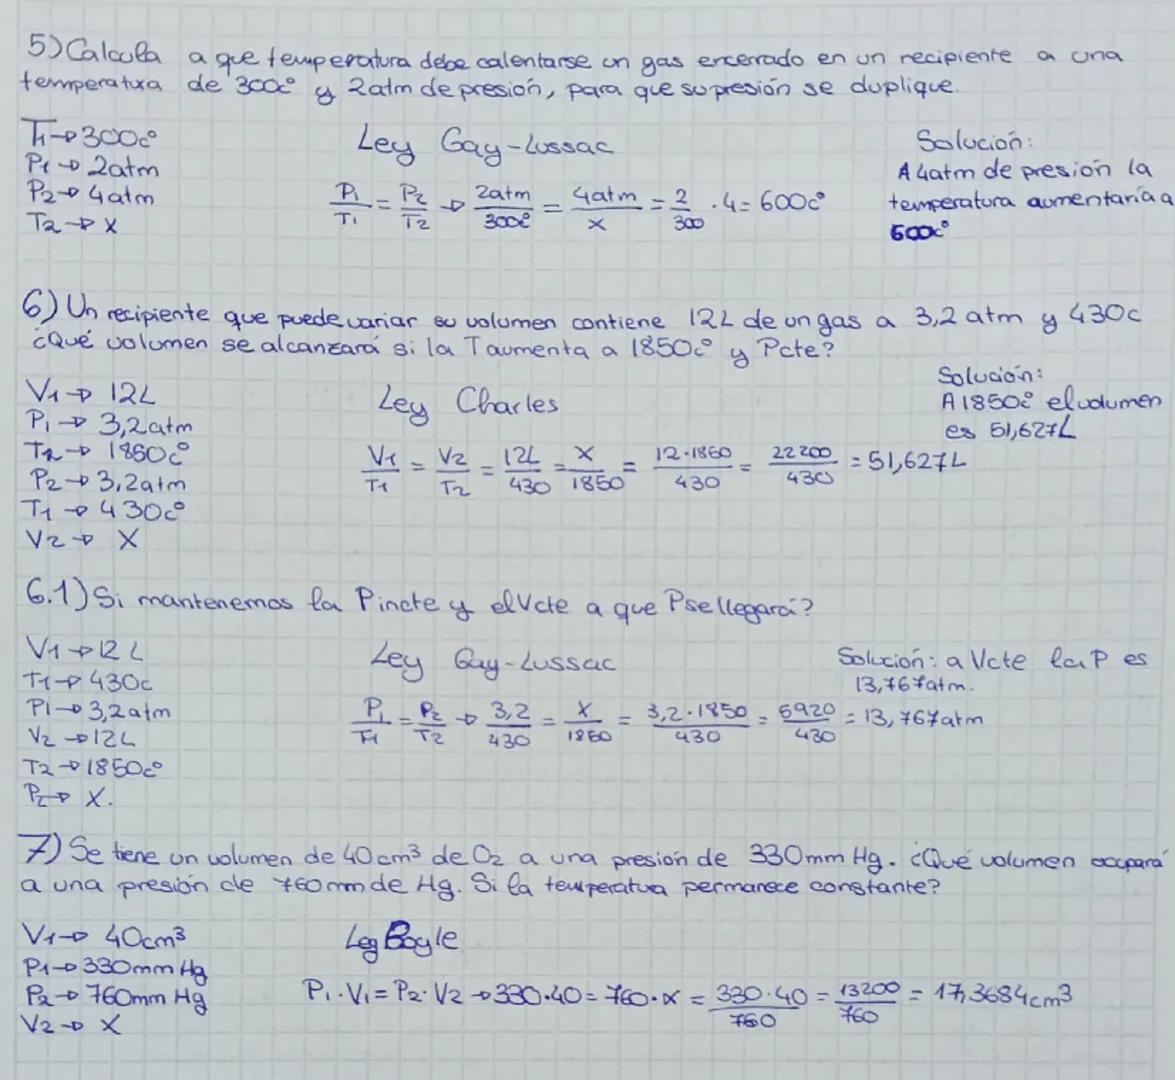 5) Calcula a que temperatura debe calentarse un gas encerrado en un recipiente a una
temperatura de 300c° y 2atm de presión, para que su presión se duplique.
T1→300c°
P1→2atm
P2→4atm
T2→x
Ley Gay-Lussac
P1/T1 = P2/T2 → 2atm/300c° = 4atm/x = 2/300 · 4 = 600c°
Solución:
A 4atm de presión la
temperatura aumentaría a
600c°
6) Un recipiente que puede variar su volumen contiene 12L de un gas a 3,2 atm y 430c
¿Qué volumen se alcanzará si la T aumenta a 1850c° y Pcte?
V1→12L
P1→3,2atm
T2→1850c°
P2→3,2atm
T1→430c°
V2→X
Ley Charles
V1/T1 = V2/T2 = 12L/430 = x/1850 = 12·1850/430 = 22200/430 = 51,627L
Solución:
A 1850c° el volumen
es 51,627L
6.1) Si mantenemos la Pincte y el Vcte a que P se llegará?
V1→12L
T1→430c
P1→3,2atm
V2→12L
T2→1850c°
P2→X.
Ley Gay-Lussac
P1/T1 = P2/T2 → 3,2/430 = x/1850 = 3,2·1850/430 = 5920/430 = 13,767atm
Solución: a Vcte la P es
13,767atm.
7) Se tiene un volumen de 40cm³ de O2 a una presión de 330mm Hg. ¿Qué volumen ocupará
a una presión de 760mm de Hg. Si la temperatura permanece constante?
V1→40cm³
P1→330mm Hg
P2→760mm Hg
V2→X
Ley Boyle
P1·V1 = P2·V2 → 330·40 = 760·x = 330·40/760 = 13200/760 = 17,3684cm³